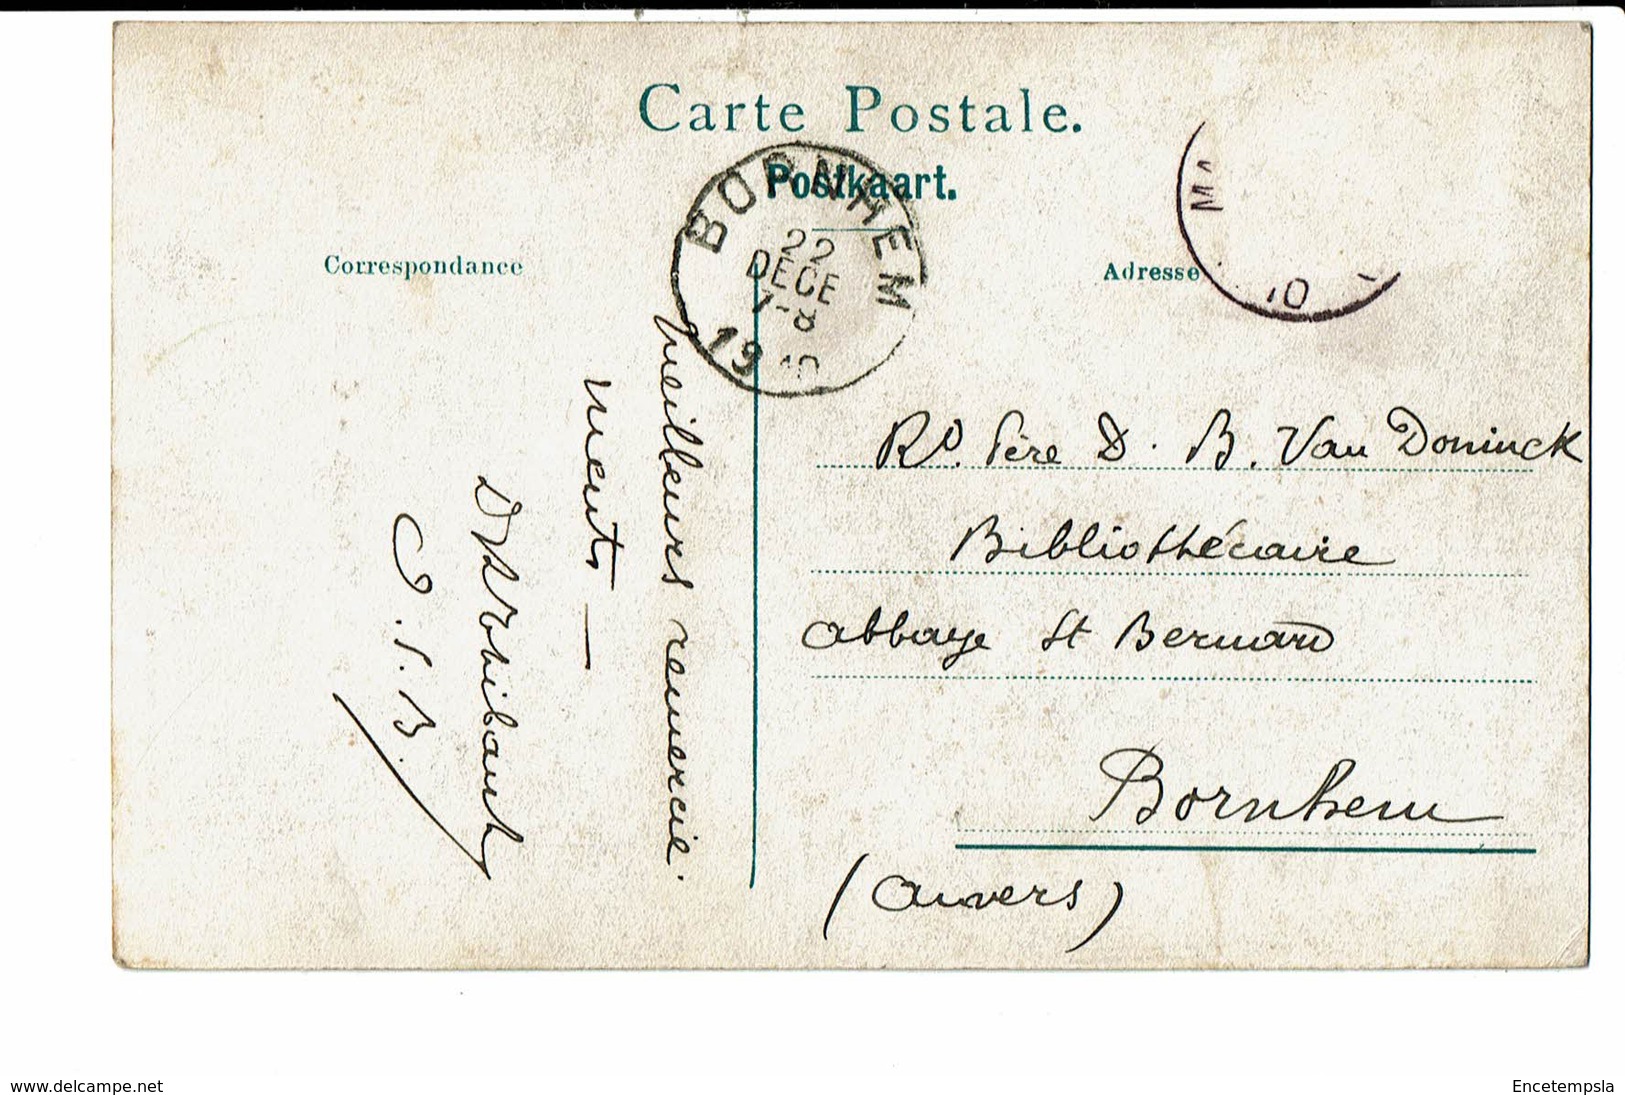 Carte Postale.
Postkaart.
BORNHEM
22
DECE
7-8
19 10
Correspondance
Adresse
10
meilleurs remercie-
ments —
O.S.B.
Rd. Père D. B. Van Doninck
Bibliothécaire
Abbaye St Bernard
Bornhem
(Anvers)
www.delcampe.net
Encetempsla